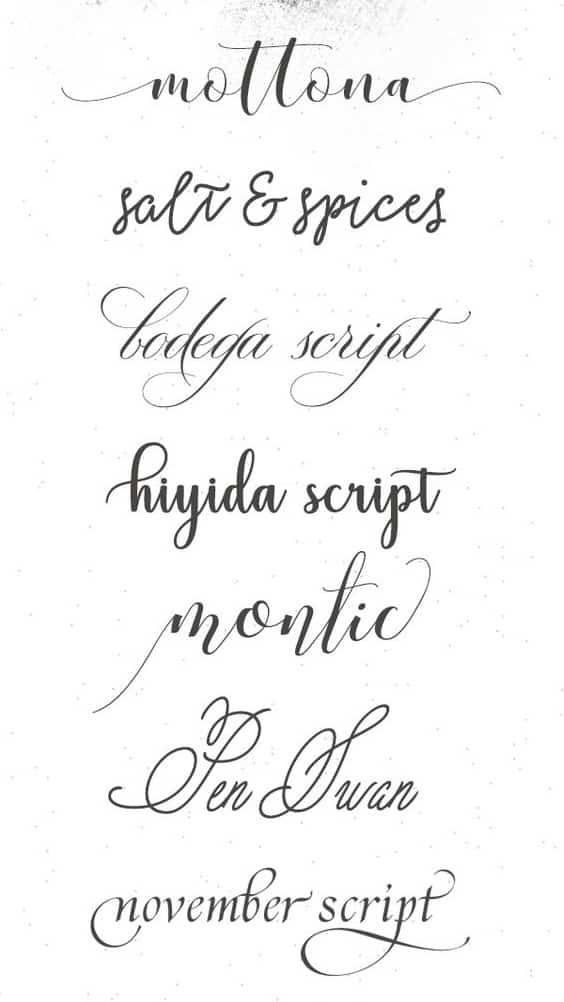 mottona
salt & spices
bodega script
hiyida script
montic
Pen Swan
november script